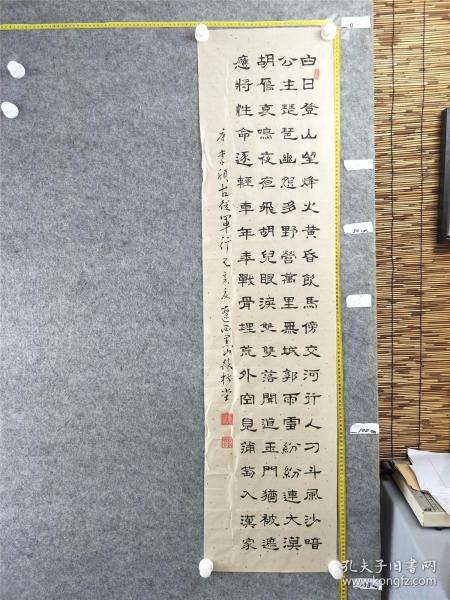 白日登山望烽火黄昏飲馬傍交河行人刁斗風沙暗
公主琵琶幽怨多野營萬里無城郭雨雪紛紛連大漠
胡雁哀鳴夜夜飛胡兒眼淚雙雙落聞道玉門猶被遮
應將性命逐輕車年年戰骨埋荒外空見蒲萄入漢家
唐李頎古從軍行乙亥夏
孔夫子旧书网
kongfz.com